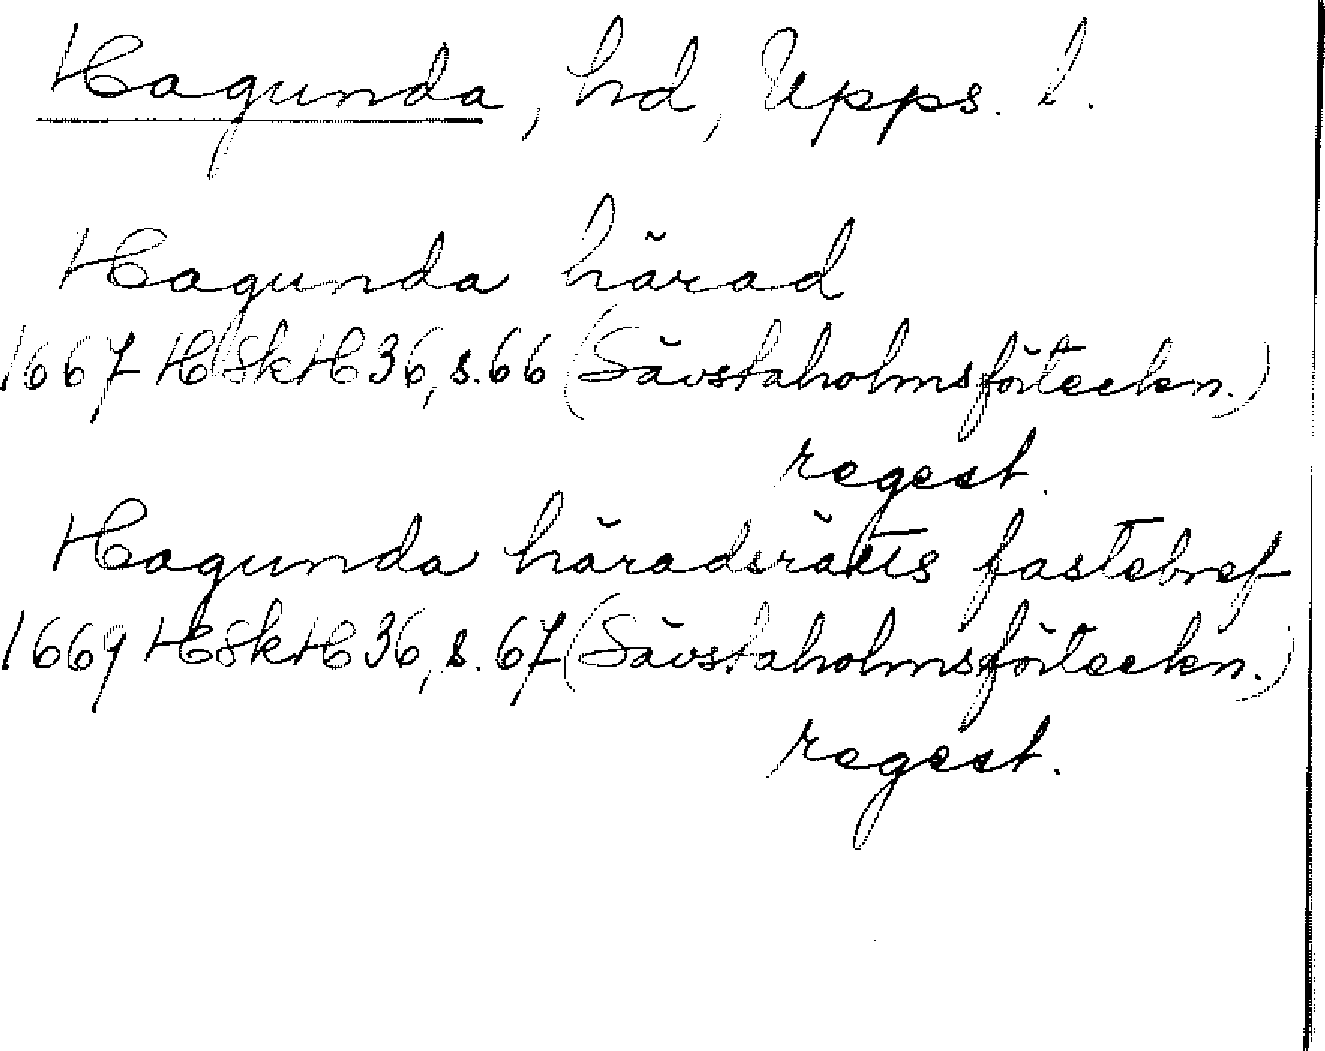 Hagunda, hd, Upps. l.
Hagunda härad
1667 HSkH 36, s. 66 (Sävstaholmsförteckn.)
regest.
Hagunda häradsrätts fastebref
1669 HSkH 36, s. 67 (Sävstaholmsförteckn.)
regest.